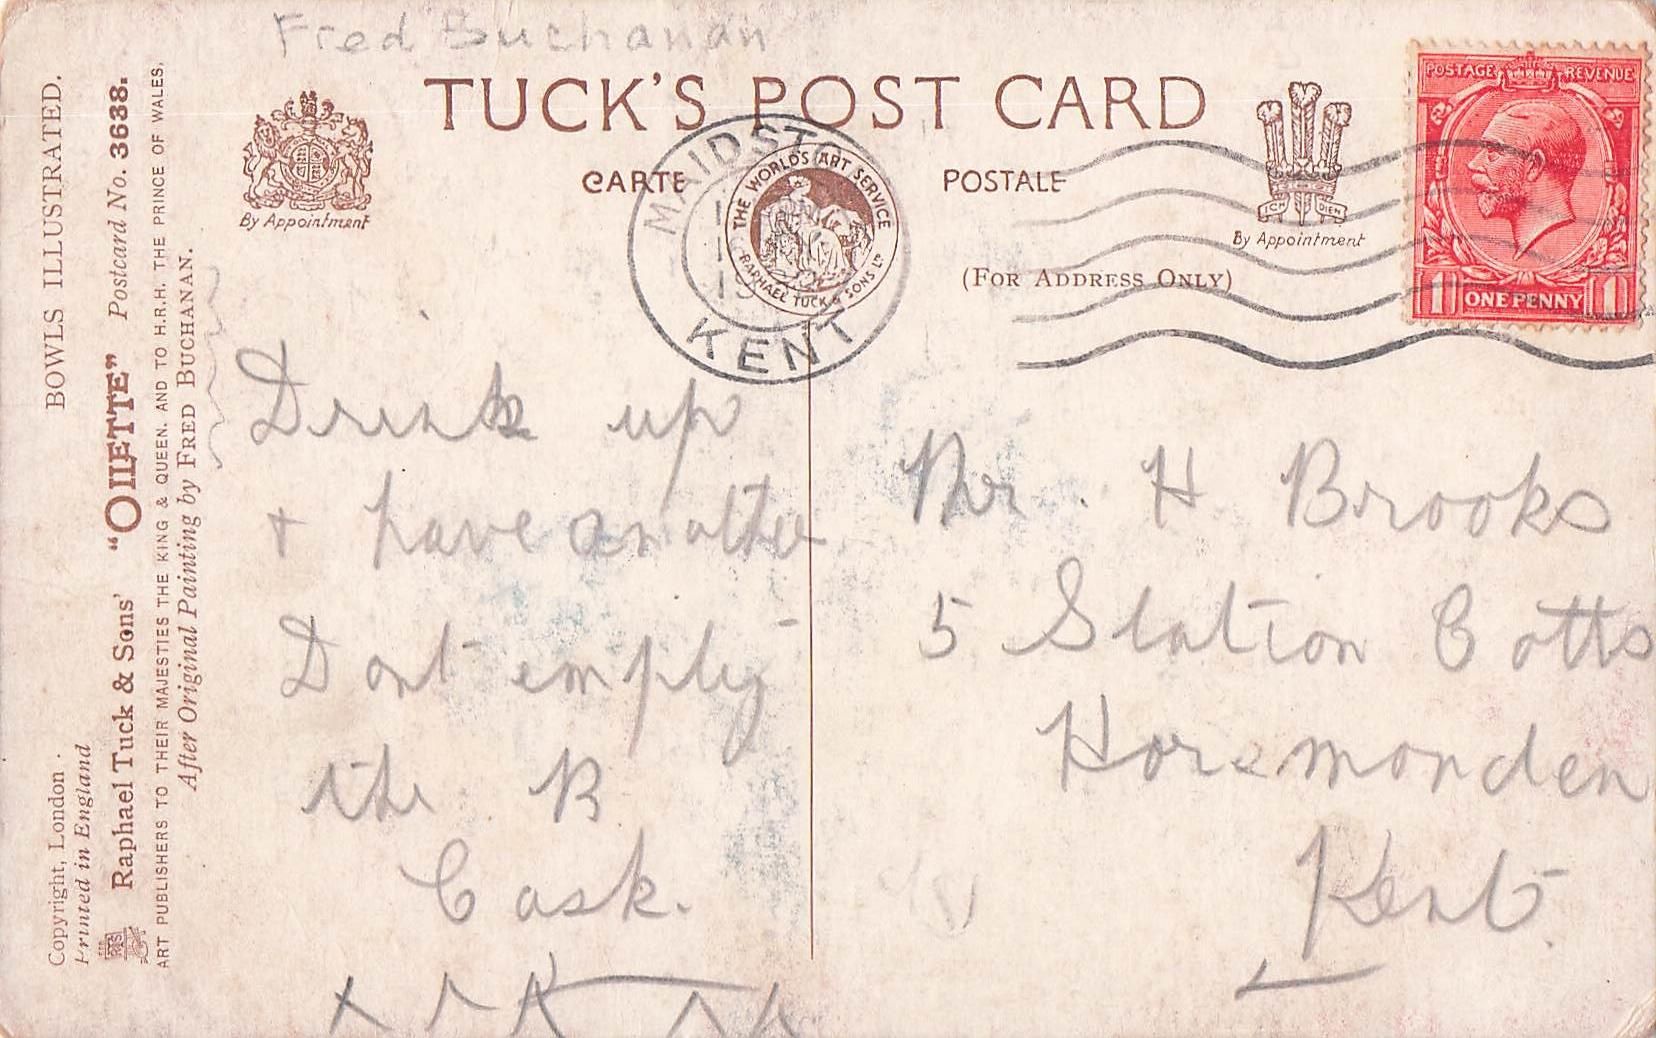 Fred Buchanan
TUCK'S POST CARD
CARTE POSTALE
(FOR ADDRESS ONLY)
By Appointment
By Appointment
ICH DIEN
THE WORLD'S ART SERVICE
RAPHAEL TUCK & SONS LD
MAIDSTO
KENT
POSTAGE REVENUE
1 ONE PENNY 1
BOWLS ILLUSTRATED.
Copyright, London.
Printed in England
Raphael Tuck & Sons' "OILETTE" Postcard No. 3638.
ART PUBLISHERS TO THEIR MAJESTIES THE KING & QUEEN, AND TO H.R.H. THE PRINCE OF WALES.
After Original Painting by FRED BUCHANAN.
Drink up
+ have another
Dont empty
the B
Cask.
Mr. H Brooks
5 Station Cotts
Horsmonden
Kent.